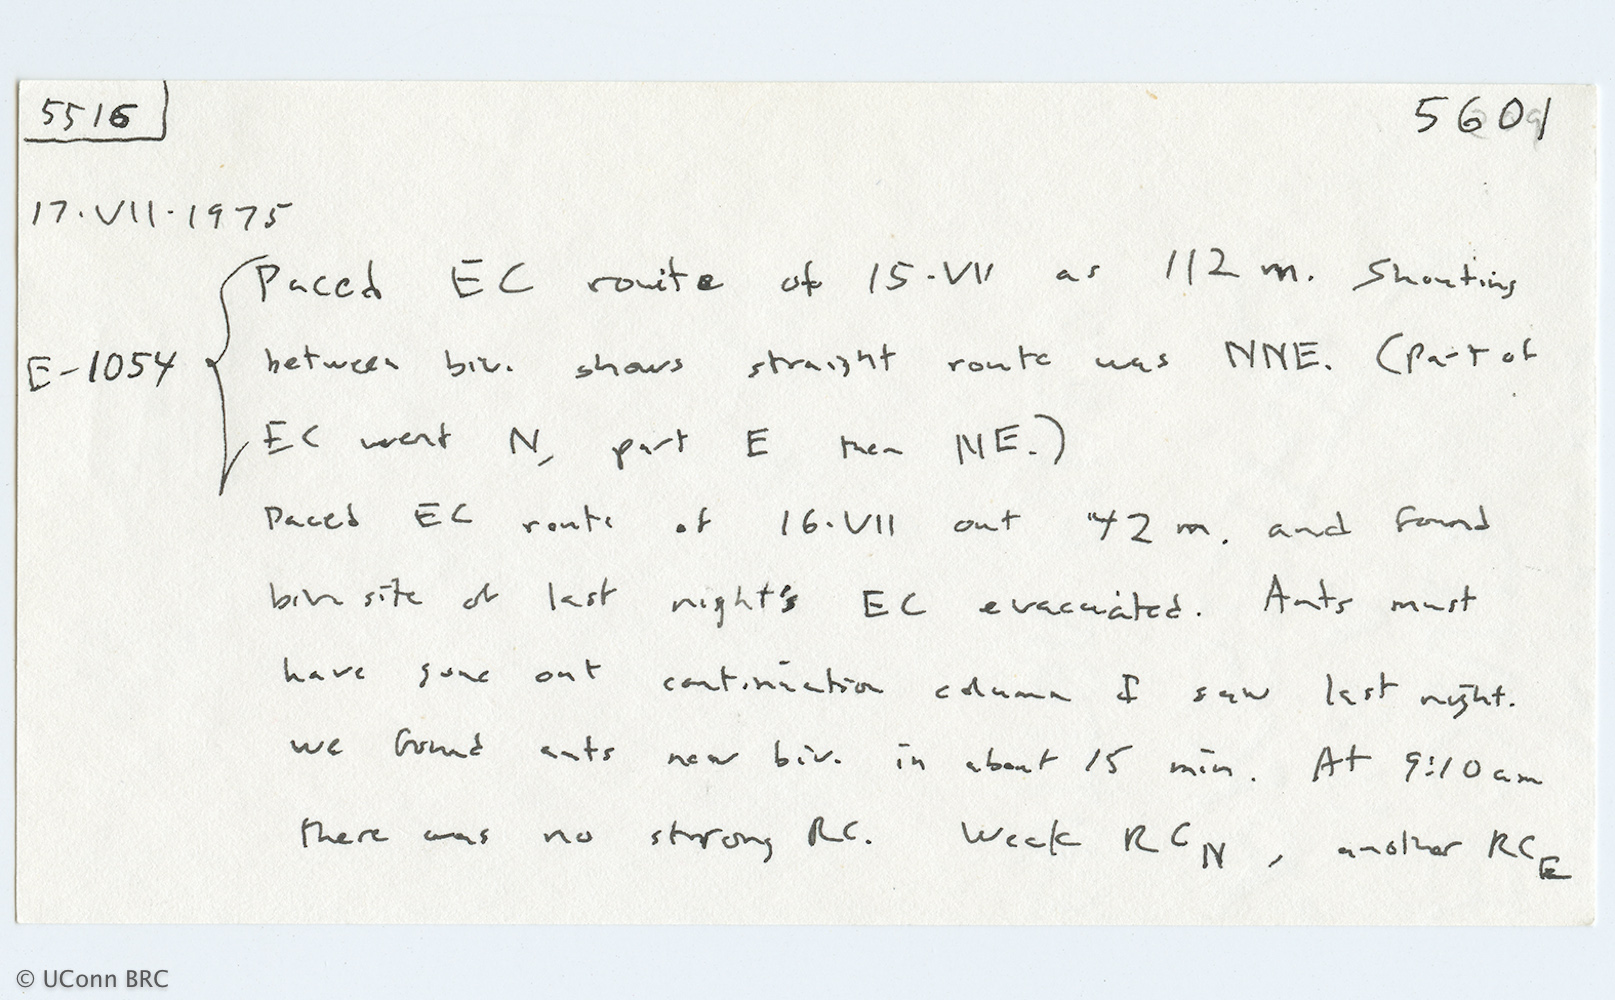 5516
5601
17.VII.1975
Paced EC route of 15.VII as 112 m. Shouting
E-1054 between biv. shows straight route was NNE. (Part of
EC went N, part E then NE.)
Paced EC route of 16.VII out 42 m. and found
biv site of last night's EC evacuated. Ants must
have gone out continuation column I saw last night.
We found ants near biv. in about 15 min. At 9:10 am
there was no strong RC. Weak RC N, another RC E
© UConn BRC